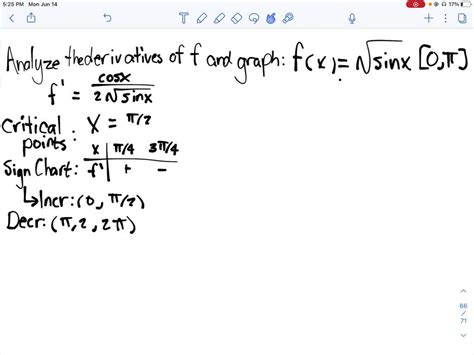 5:25 PM Mon Jun 14
17%
Analyze the derivatives of f and graph: f(x) = √sinx [0,π]
f' = cosx / 2√sinx
Critical points: x = π/2
Sign Chart: x | π/4 3π/4
f' | + −
↳Incr: (0, π/2)
Decr: (π,2, 2π)
66
/
71